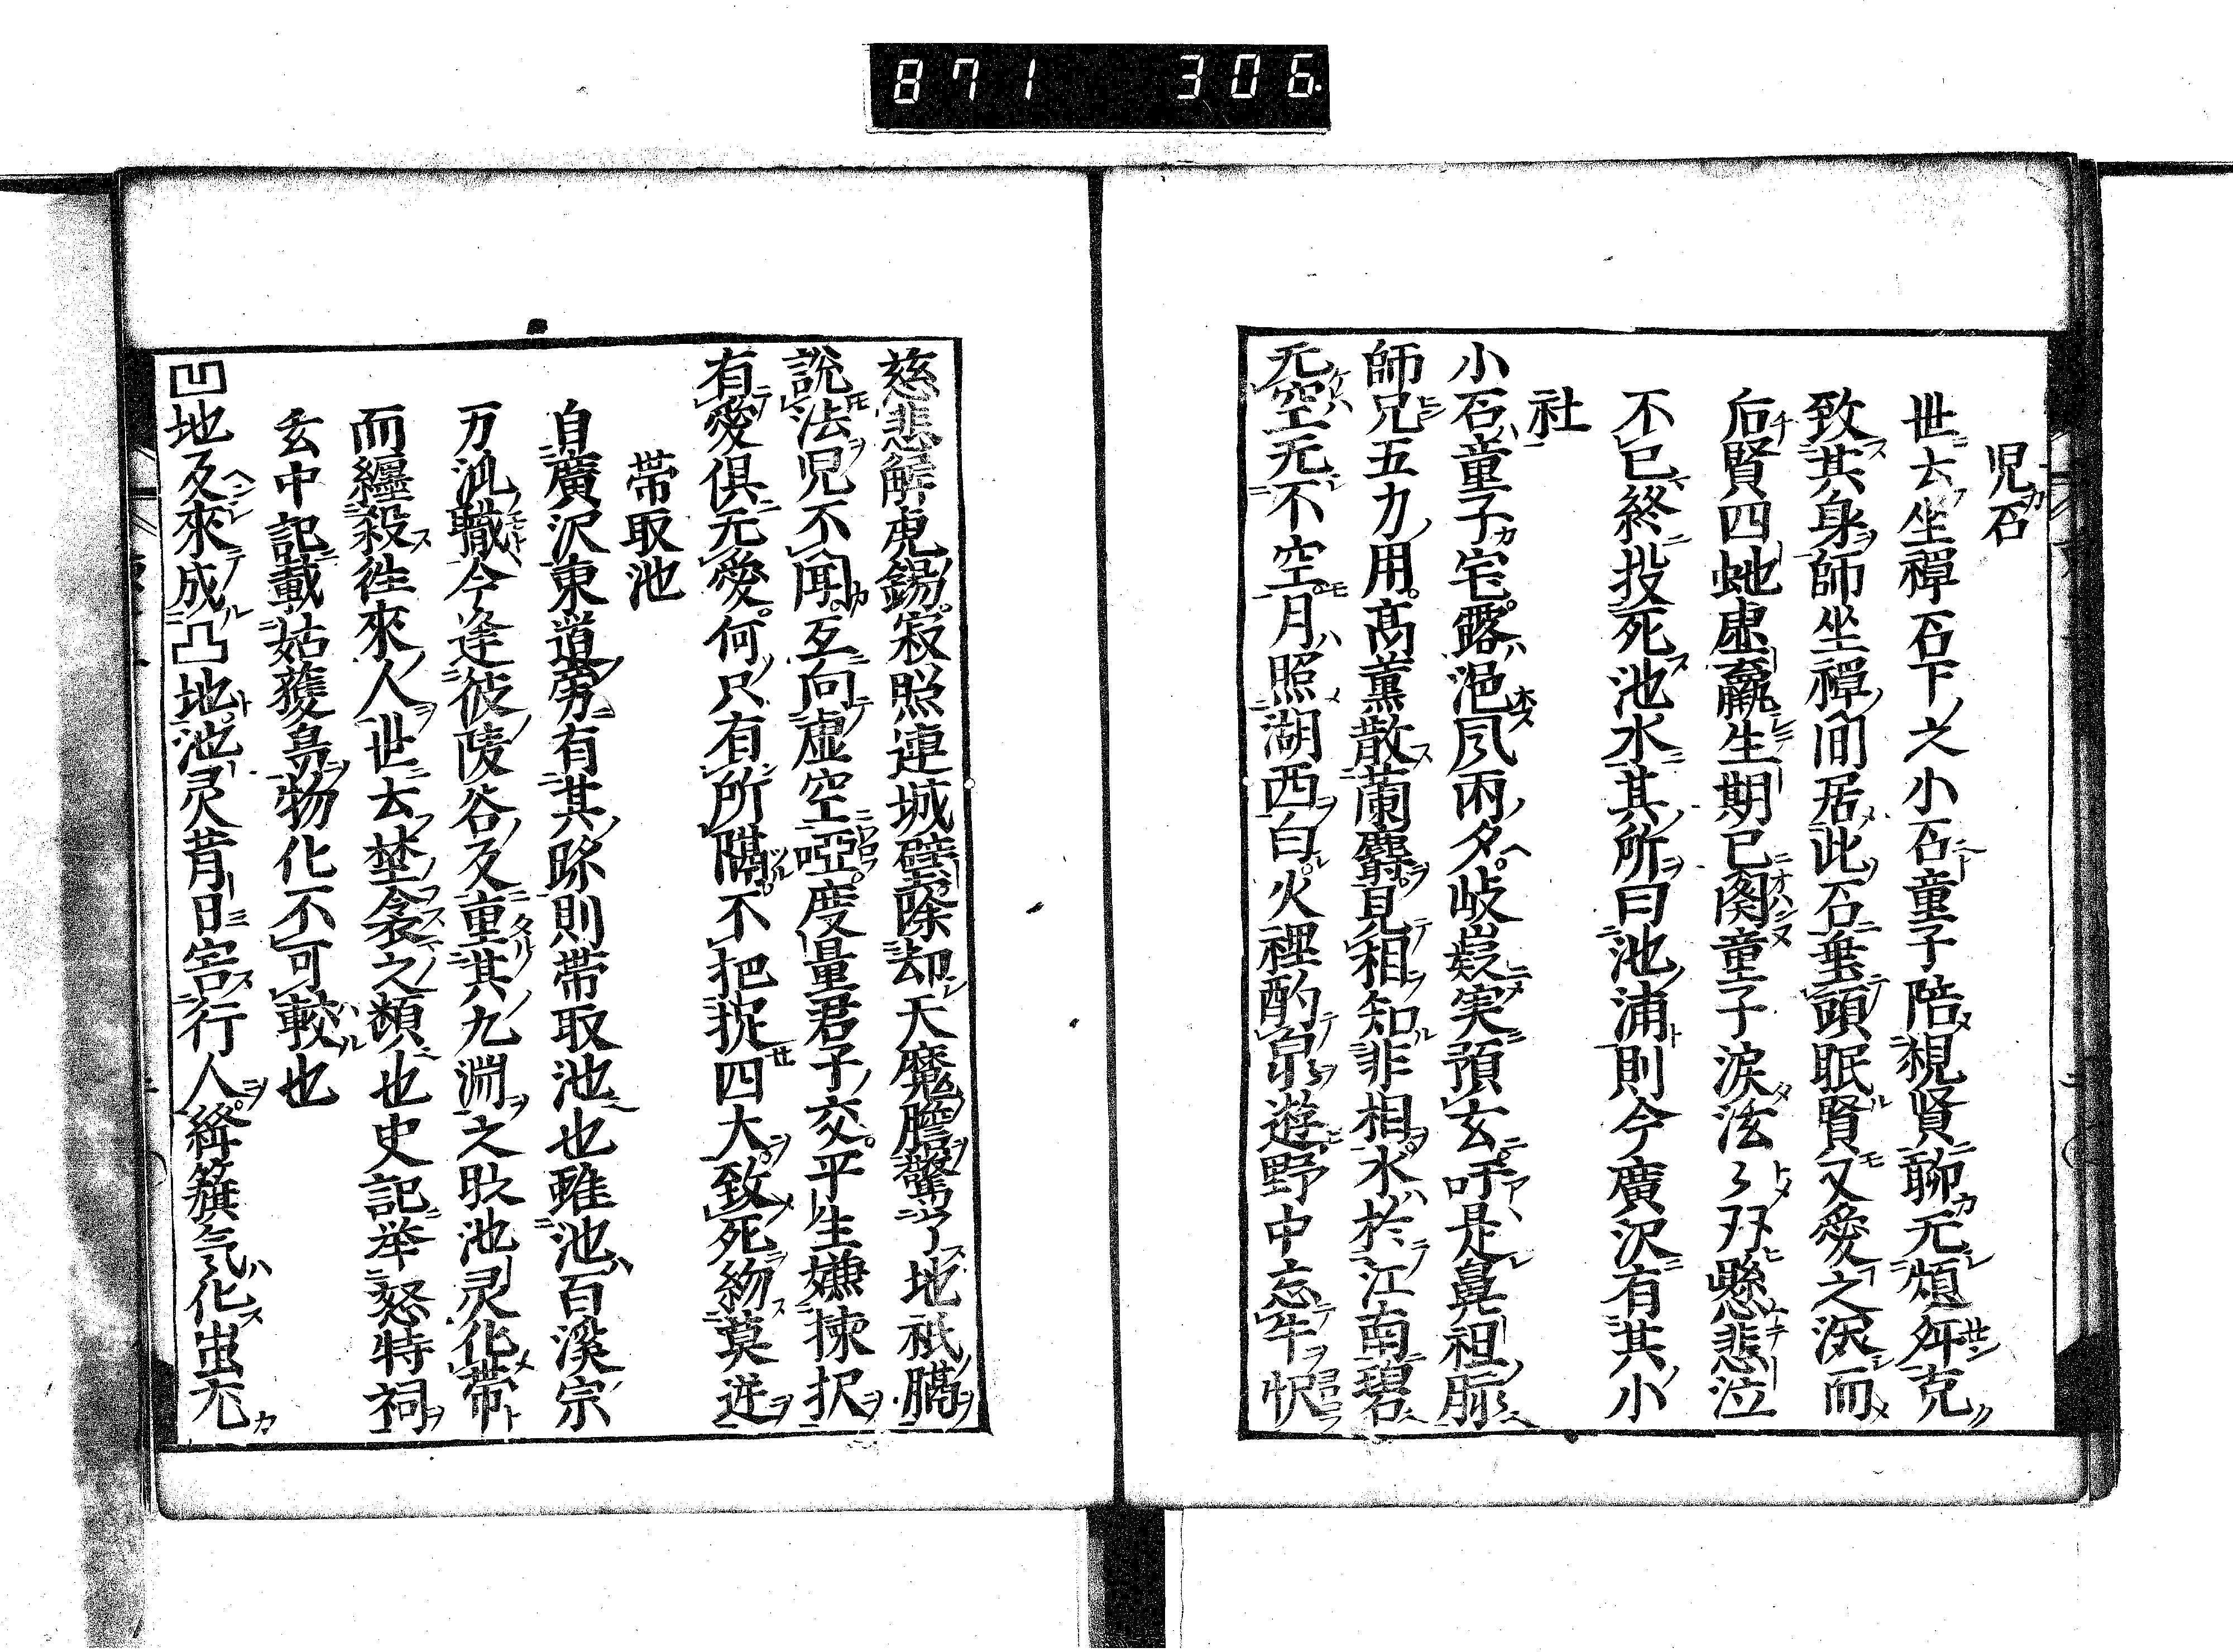 871 306
児石
世去坐禅石下之小石童子陪親賢聊无煩克
致其身師坐禅間居此石垂頭眠賢又愛之深而
后賢四虵虚羸生期已闋童子涙泫〻刄懸悲泣
不已終投死池水其所曰池浦則今廣沢有其小
社
小石童子宅露浥風雨夕岐嶷実預玄呼是鼻祖脈
師兄五力用高薫散蘭麝見相知非相水於江南碧
无空无不空月照湖西白火裡酌泉遊野中忘牛恢
慈悲解虎錫寂照連城璧除却天魔膽驚了地祇膈
説法児不聞互向虚空啞度量君子交平生嫌揀択
有愛倶无愛何只有所隔不把捉四大致死物莫逆
帯取池
自廣沢東道旁有其跡則帯取池也雖池百溪宗
万泒職今逢彼陵谷及重其九淵之㳄池灵化帯
而纒殺徃來人世去埜衾之類也史記举怒特祠
玄中記載姑獲鳥物化不可較也
凹地及來成凸地池灵昔日害行人絳籏气化虫无